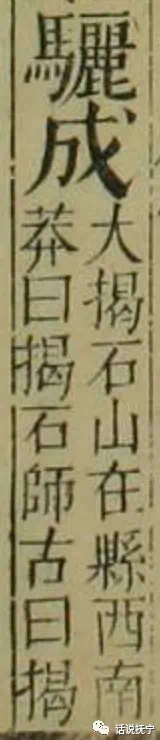 驪成
大揭石山在縣西南
莽曰揭石師古曰揭
话说抚宁